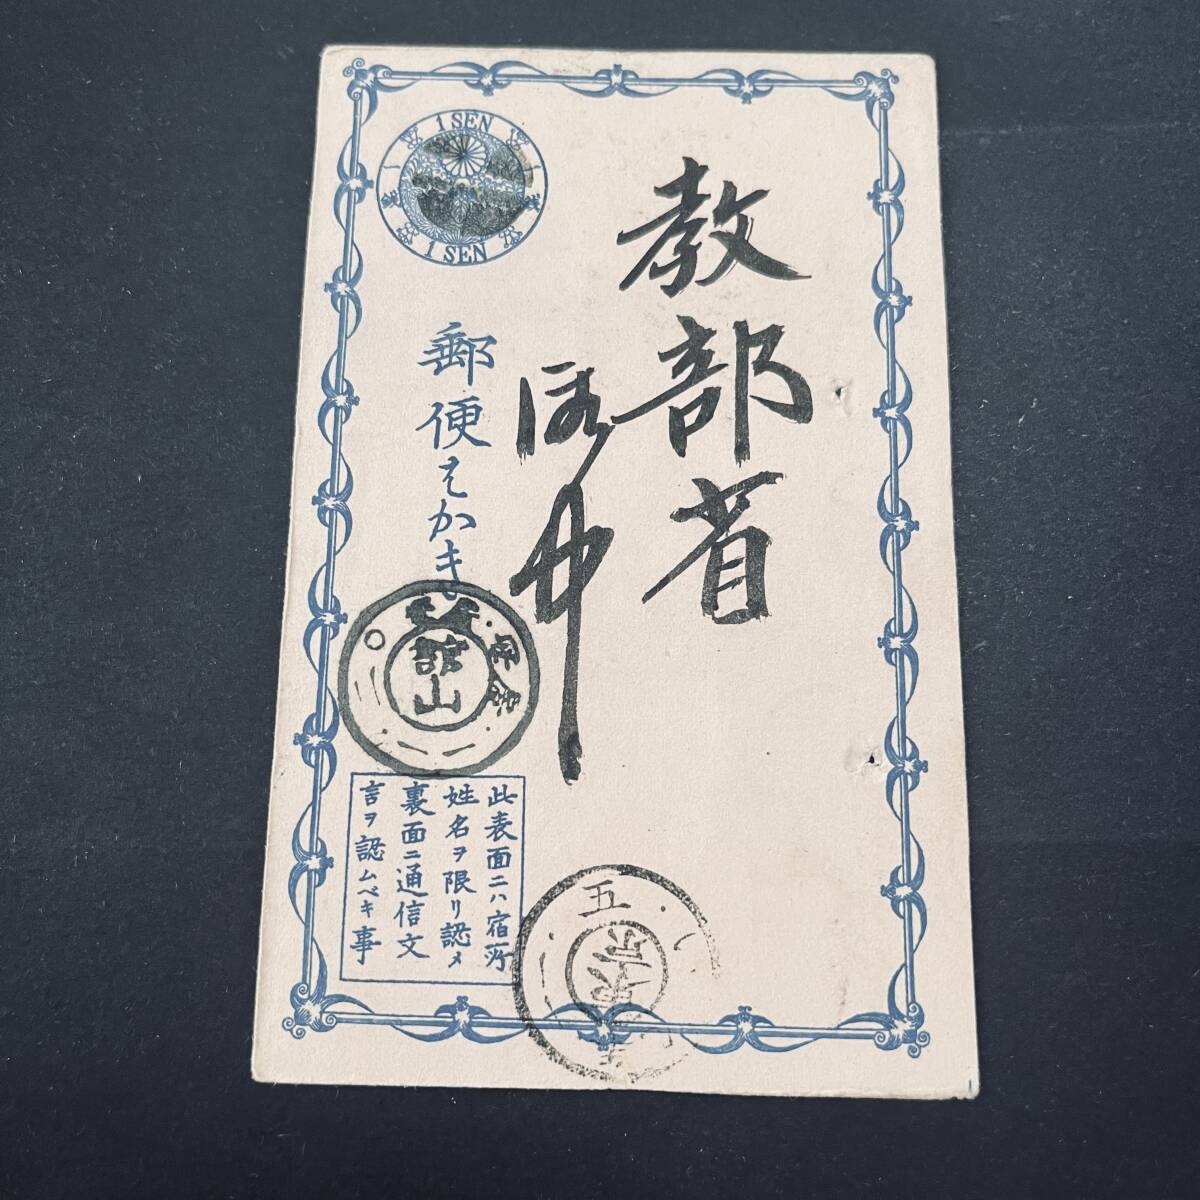 教部省
御中
1 SEN
一銭
1 SEN
郵便はかき
安房
館山
五
東京
此表面ニハ宿所
姓名ヲ限リ認メ
裏面ニ通信文
言ヲ認ムベキ事